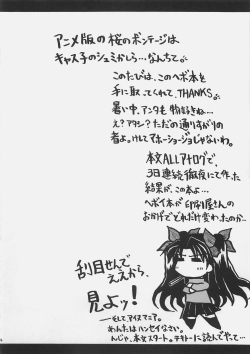 アニメ版の桜のボンテージは
キャス子のシュミかしら…なんちて。
このたびは、このヘボ本を
手に取ってくれて、THANKS。
暑い中、アンタも物好きね…
え？アタシ？ただの通りすがりの
者よ。けしてアホーショージョじゃないわ。
本文ALLアナログで、
3日連続徹夜にて作った
結果が、この本よ…
ヘボイ本が印刷屋さんの
おかげでどれだけ変わったのか…
刮目せんで
ええから、
見よッ！
―そしてアイスマニア。
あんたはハンセイなさい。
んじゃ、本文スタート。テキトーに読んでやって…